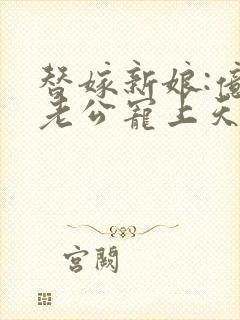 替嫁新娘:億
老公寵上天
宮闕